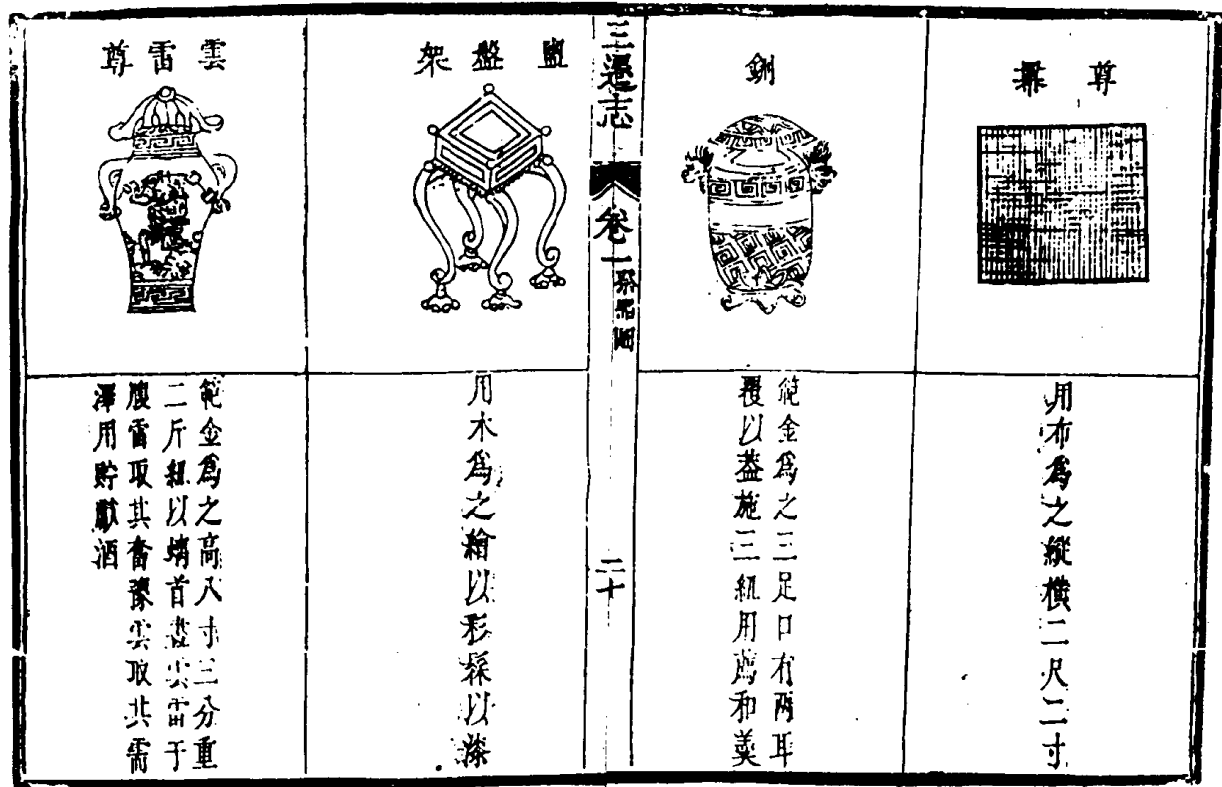 尊冪
用布爲之縱橫二尺二寸
鉶
範金爲之三足口有兩耳
覆以蓋施三紐用薦和羹
三遷志
卷一
祭器圖
二十
盥盤架
用木爲之繪以彩以漆
雲雷尊
範金爲之高八寸三分重
二斤紐以螭首畫雲雷于
腹雷取其奮豫雲取其需
澤用貯獻酒